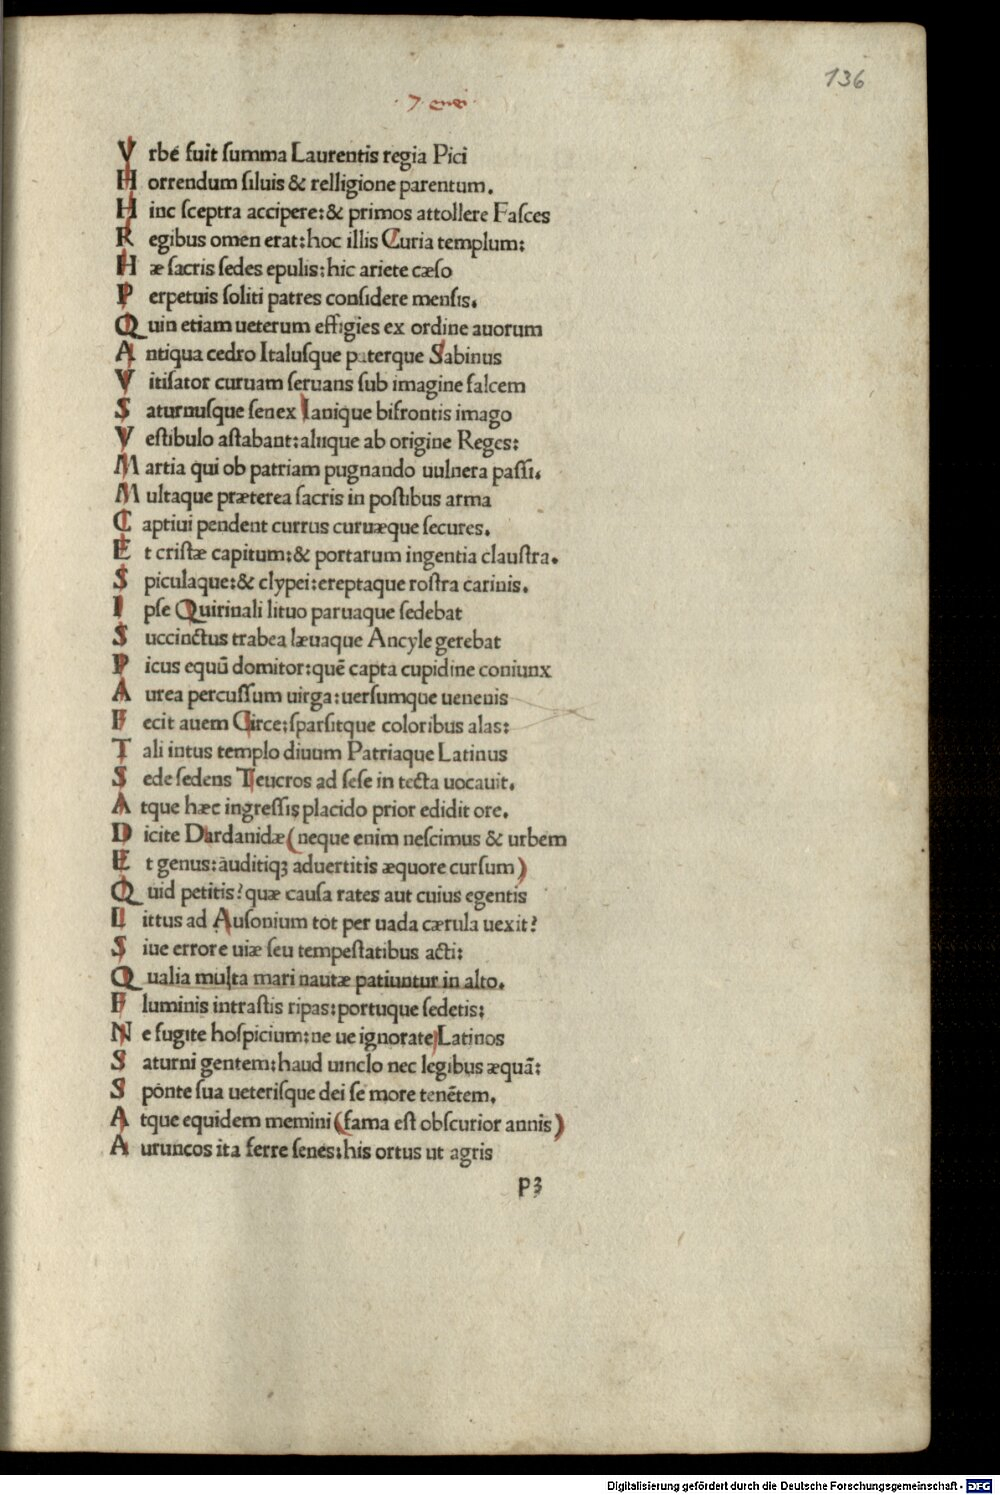 136
· 7 enei ·
V rbē fuit ſumma Laurentis regia Pici
H orrendum ſiluis & relligione parentum.
H inc ſceptra accipere: & primos attollere Faſces
R egibus omen erat: hoc illis Curia templum:
H æ ſacris ſedes epulis: hic ariete cæſo
P erpetuis ſoliti patres conſidere menſis.
Q uin etiam ueterum effigies ex ordine auorum
A ntiqua cedro Italuſque paterque Sabinus
V itiſator curuam ſeruans ſub imagine falcem
S aturnuſque ſenex Ianique bifrontis imago
V eſtibulo aſtabant: aliique ab origine Reges:
M artia qui ob patriam pugnando uulnera paſſi.
M ultaque præterea ſacris in poſtibus arma
C aptiui pendent currus curuæque ſecures.
E t criſtæ capitum: & portarum ingentia clauſtra.
S piculaque: & clypei: ereptaque roſtra carinis.
I pſe Quirinali lituo paruaque ſedebat
S uccinctus trabea læuaque Ancyle gerebat
P icus equū domitor: quē capta cupidine coniunx
A urea percuſſum uirga: uerſumque uenenis
F ecit auem Circe: ſparſitque coloribus alas:
T ali intus templo diuum Patriaque Latinus
S ede ſedens Teucros ad ſeſe in tecta uocauit.
A tque hæc ingreſſis placido prior edidit ore.
D icite Dardanidæ (neque enim neſcimus & urbem
E t genus: auditiqꝫ aduertitis æquore curſum)
Q uid petitis? quæ cauſa rates aut cuius egentis
L ittus ad Auſonium tot per uada cærula uexit?
S iue errore uiæ ſeu tempeſtatibus acti:
Q ualia multa mari nautæ patiuntur in alto.
F luminis intraſtis ripas: portuque ſedetis:
N e fugite hoſpicium: ne ue ignorate Latinos
S aturni gentem: haud uinclo nec legibus æquā:
S ponte ſua ueteriſque dei ſe more tenētem.
A tque equidem memini (fama eſt obſcurior annis)
A uruncos ita ferre ſenes: his ortus ut agris
p3
Digitalisierung gefördert durch die Deutsche Forschungsgemeinschaft - DFG